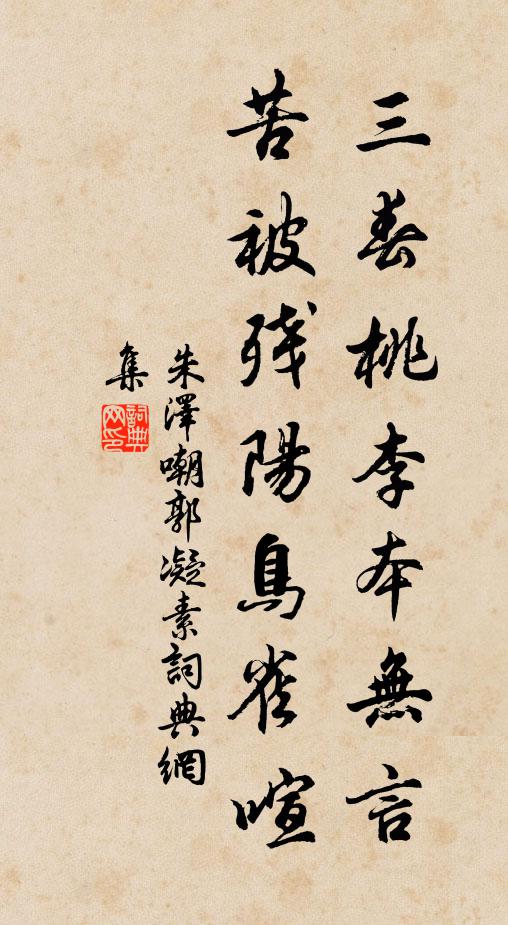 三春桃李本無言
苦被残陽鳥雀喧
朱澤嘲郭凝素詞典網
集
詞典网印